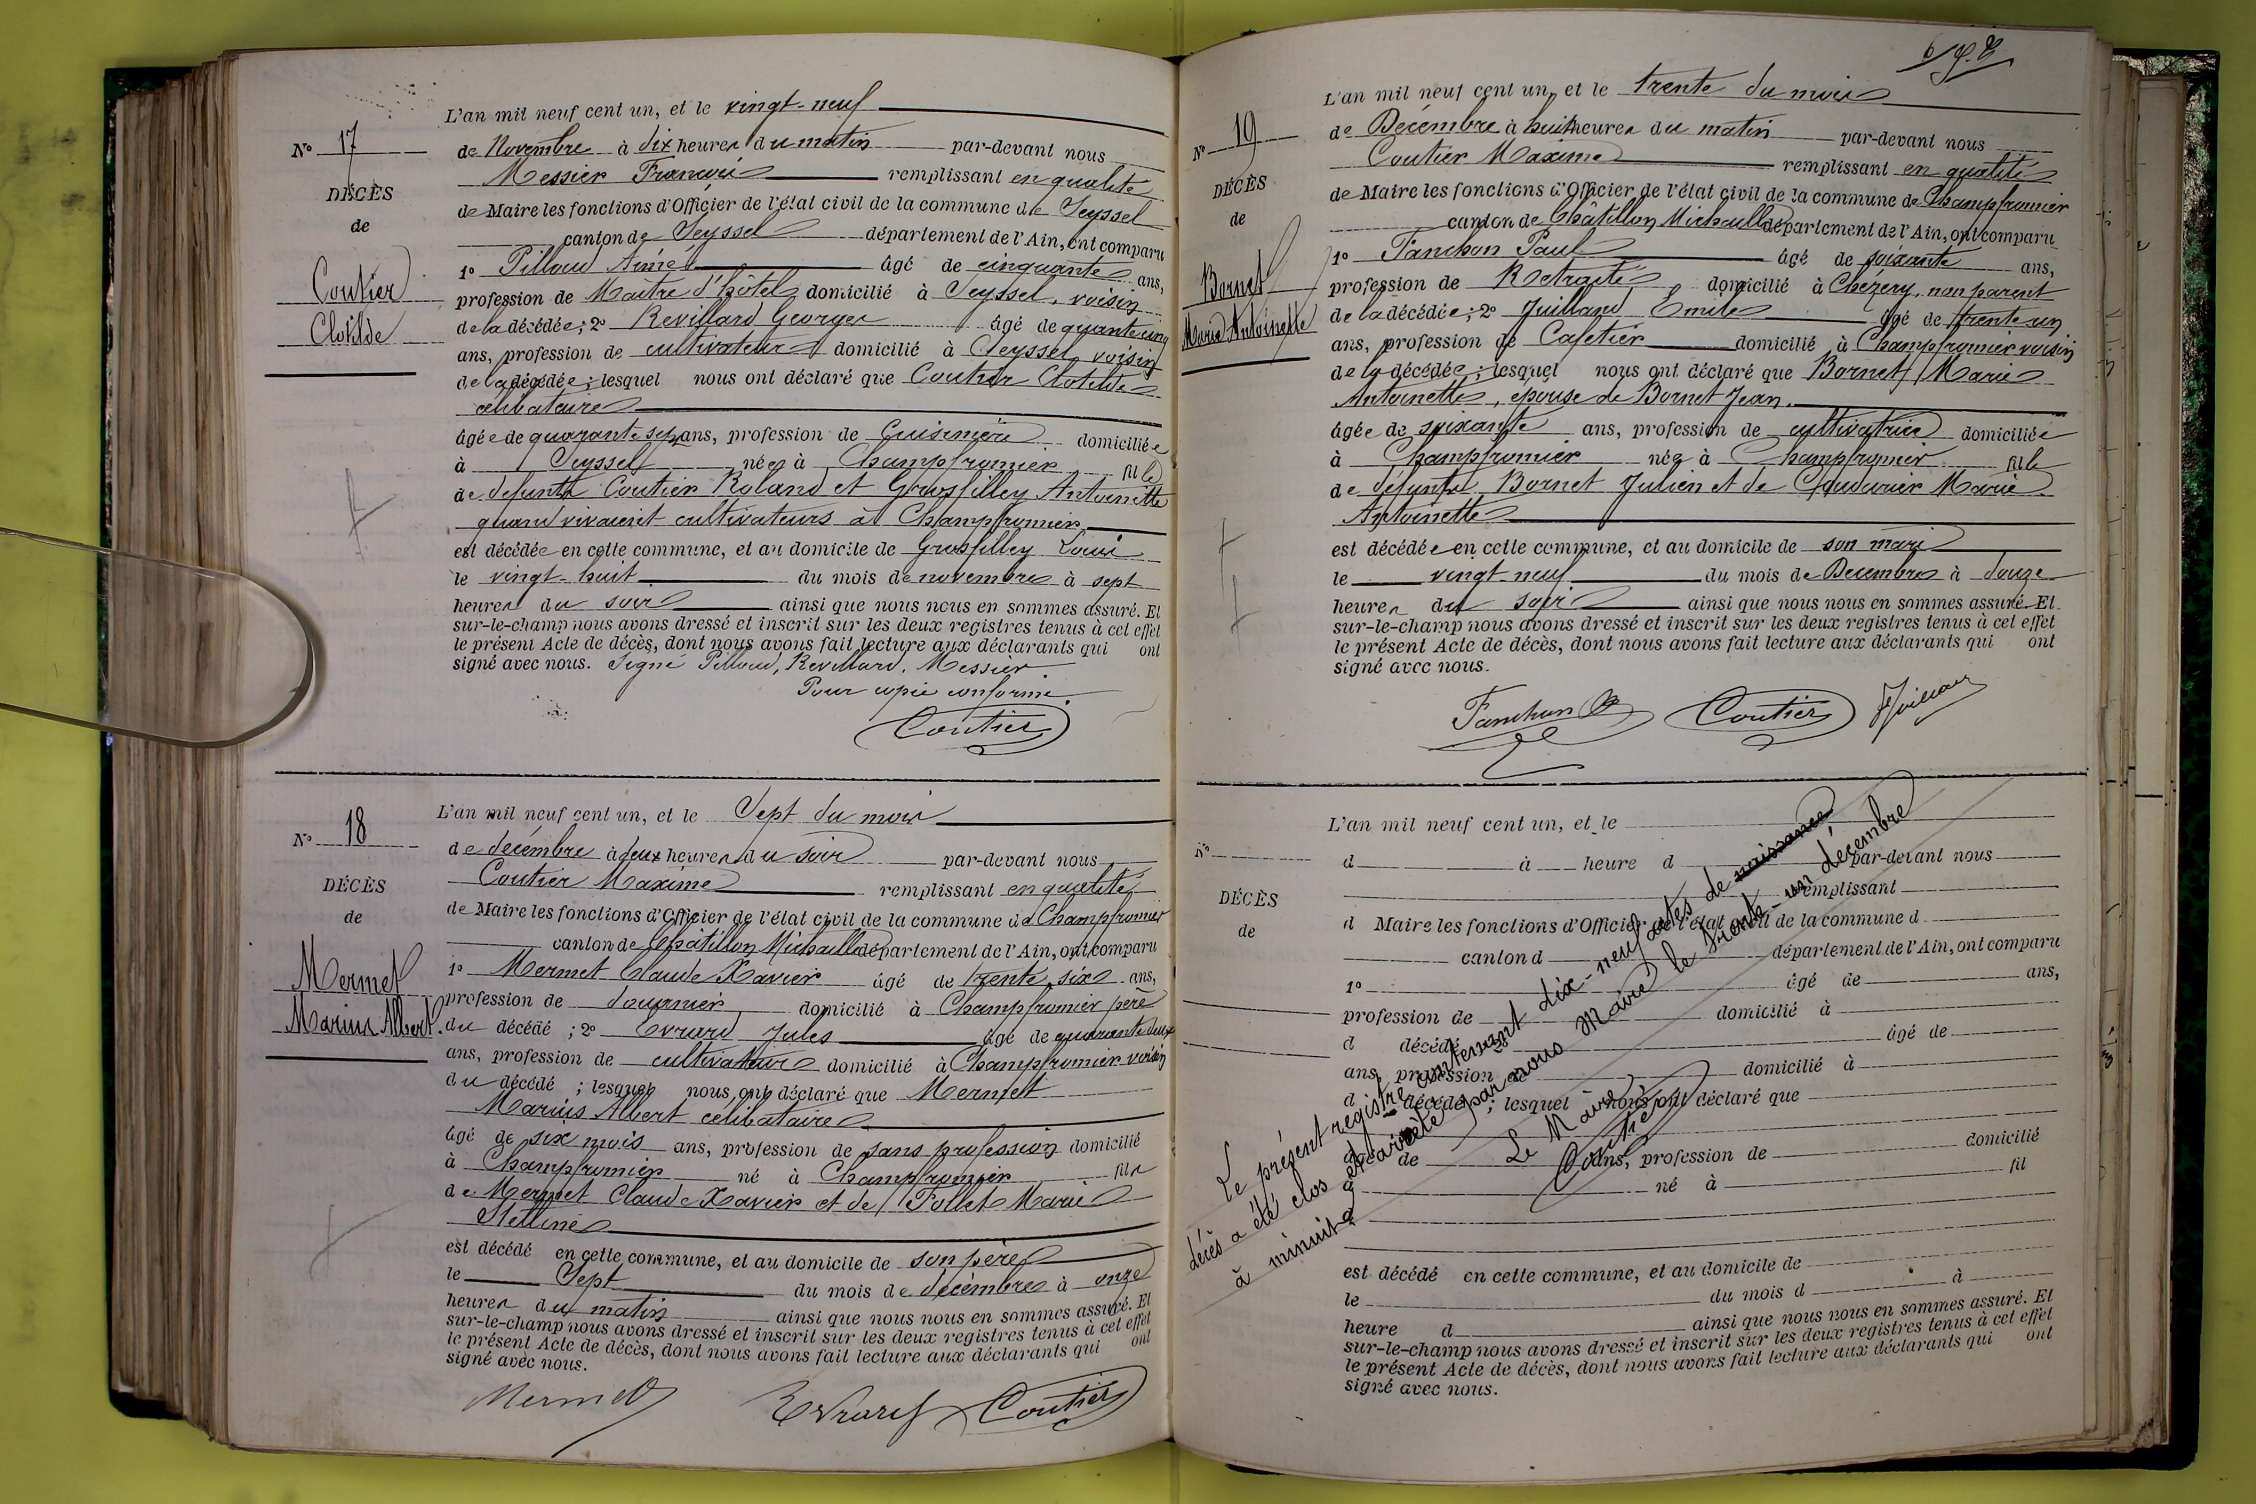 L'an mil neuf cent un, et le vingt-neuf
No 17
de Novembre à dix heures du matin par-devant nous
Messier François remplissant en qualité
DÉCÈS
de Maire les fonctions d'Officier de l'état civil de la commune de Seyssel
de
canton de Seyssel département de l'Ain, ont comparu
1o Pilloud Aimé âgé de cinquante ans,
Coutier
profession de Maître d'hôtel domicilié à Seyssel, voisin
Clotilde
de la décédée; 2o Revillard Georges âgé de
ans, profession de cultivateur domicilié à Seyssel voisin
de la décédée; lesquel nous ont déclaré que Coutier Clotilde
célibataire
âgée de quarante sept ans, profession de Cuisinière domiciliée
à Seyssel née à Champfromier fille
de défunts Coutier Roland et Grosfilley Antoinette
quand vivaient cultivateurs à Champfromier
est décédée en cette commune, et au domicile de Grosfilley Louis
le vingt-huit du mois de novembre à sept
heures du soir ainsi que nous nous en sommes assuré. Et
sur-le-champ nous avons dressé et inscrit sur les deux registres tenus à cet effet
le présent Acte de décès, dont nous avons fait lecture aux déclarants qui ont
signé avec nous. Signé Pilloud, Revillard, Messier
Pour copie conforme
Coutier
L'an mil neuf cent un, et le Sept du mois
No 18
de décembre à deux heures du soir par-devant nous
Coutier Maxime remplissant en qualité
DÉCÈS
de Maire les fonctions d'Officier de l'état civil de la commune de Champfromier
de
canton de Châtillon Michaille département de l'Ain, ont comparu
1o Mermet Claude Xavier âgé de trente six ans,
Mermet
profession de domicilié à Champfromier père
Marius Albert.
du décédé; 2o Evrard Jules âgé de quarante deux
ans, profession de cultivateur domicilié à Champfromier voisin
du décédé; lesquels nous ont déclaré que Mermet
Marius Albert célibataire
âgé de six mois ans, profession de sans profession domicilié
à Champfromier né à Champfromier fils
de Mermet Claude Xavier et de Tollet Marie
Stelline
est décédé en cette commune, et au domicile de son père
le Sept du mois de décembre à onze
heures du matin ainsi que nous nous en sommes assuré. Et
sur-le-champ nous avons dressé et inscrit sur les deux registres tenus à cet effet
le présent Acte de décès, dont nous avons fait lecture aux déclarants qui ont
signé avec nous.
Mermet Evrard Coutier
L'an mil neuf cent un, et le trente du mois
No 19
de Décembre à huit heures du matin par-devant nous
Coutier Maxime remplissant en qualité
DÉCÈS
de Maire les fonctions d'Officier de l'état civil de la commune de Champfromier
de
canton de Châtillon Michaille département de l'Ain, ont comparu
1o Fanchon Paul âgé de soixante ans,
Bornet
profession de Retraité domicilié à Chézery, non parent
Marie Antoinette
de la décédée; 2o Juilland Emile âgé de trente un
ans, profession de Cafetier domicilié à Champfromier voisin
de la décédée; lesquel nous ont déclaré que Bornet Marie
Antoinette, épouse de Bornet Jean.
âgée de soixante ans, profession de cultivatrice domiciliée
à Champfromier née à Champfromier fille
de défunts Bornet Julien et de Coudurier Marie
Antoinette
est décédée en cette commune, et au domicile de son mari
le vingt-neuf du mois de Décembre à douze
heures du soir ainsi que nous nous en sommes assuré. Et
sur-le-champ nous avons dressé et inscrit sur les deux registres tenus à cet effet
le présent Acte de décès, dont nous avons fait lecture aux déclarants qui ont
signé avec nous.
Fanchon Coutier
L'an mil neuf cent un, et le
No
d à heure d par-devant nous
remplissant
DÉCÈS
d Maire les fonctions d'Officier de l'état civil de la commune d
de
canton d département de l'Ain, ont comparu
1o âgé de ans,
profession de domicilié à
d décédé; 2o âgé de
ans, profession de domicilié à
d décédé; lesquel nous ont déclaré que
âgé de ans, profession de domicilié
à né à fil
est décédé en cette commune, et au domicile de
le du mois d à
heure d ainsi que nous nous en sommes assuré. Et
sur-le-champ nous avons dressé et inscrit sur les deux registres tenus à cet effet
le présent Acte de décès, dont nous avons fait lecture aux déclarants qui ont
signé avec nous.
Le présent registre contenant dix-neuf actes de naissance
décès a été clos et arrêté par nous Maire le trente-un décembre
à minuit
Le Maire
Coutier